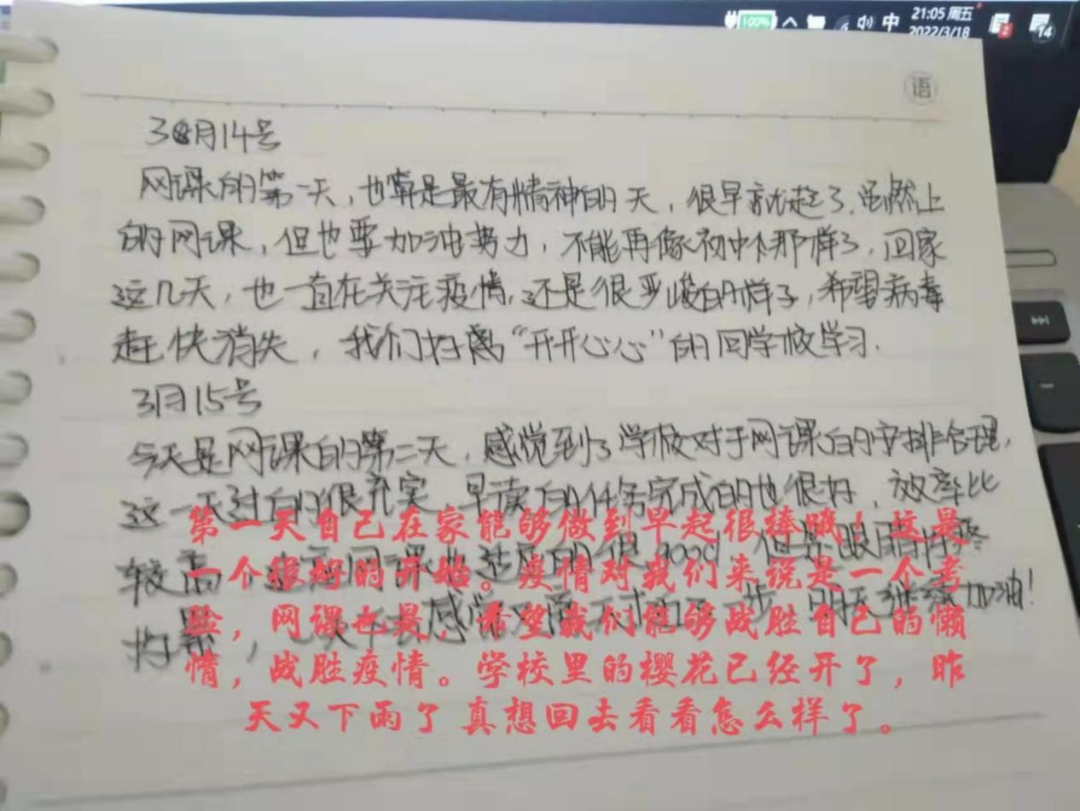 100%
中
21:05 周五
2022/3/18
2
14
语
3月14号
网课的第一天,也算是最有精神的一天,很早就起了.虽然上
的网课,但也要加油努力,不能再像初中那样了,回家
这几天,也一直在关注疫情,还是很严峻的样子,希望病毒
赶快消失,我们好离“开开心心”的回学校学习.
3月15号
今天是网课的第二天,感觉到了学校对于网课的安排合理,
这一天过的很充实,早读的任务完成的也很好,效率比
较高
明天继续加油!
第一天自己在家能够做到早起很棒哦!这是
一个很好的开始。疫情对我们来说是一个考
验,网课也是,希望我们能够战胜自己的懒
惰,战胜疫情。学校里的樱花已经开了,昨
天又下雨了 真想回去看看怎么样了。